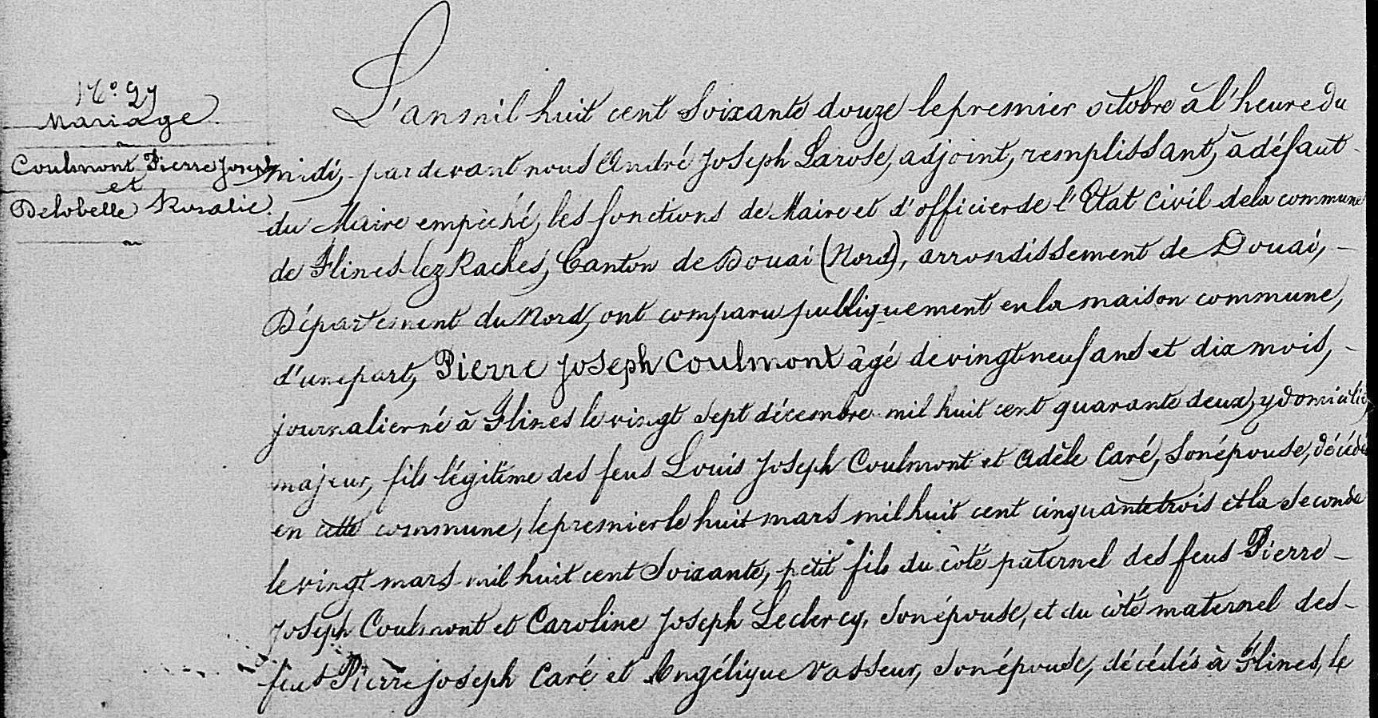 N.° 27
Mariage.
Coulmont Pierre Joseph
et
Delobelle Rosalie.
L'an mil huit cent soixante douze le premier octobre à l'heure du
midi, par devant nous André Joseph Larose, adjoint, remplissant, à défaut
du Maire empêché, les fonctions de Maire et d'officier de l'Etat civil de la commune
de Flines-lez-Raches, Canton de Douai (Nord), arrondissement de Douai, -
Département du Nord, ont comparu publiquement en la maison commune,
d'une part, Pierre Joseph Coulmont âgé de vingt neuf ans et dix mois, -
journalier né à Flines le vingt sept décembre mil huit cent quarante deux, y domicilié,
majeur, fils légitime des feus Louis Joseph Coulmont et Adèle Caré, son épouse, décédés
en cette commune, le premier le huit mars mil huit cent cinquante trois et la seconde
le vingt mars mil huit cent soixante, petit fils du côté paternel des feus Pierre -
Joseph Coulmont et Caroline Joseph Leclercq, son épouse, et du côté maternel des -
feus Pierre Joseph Caré et Angélique Vasseur, son épouse, décédés à Flines, le